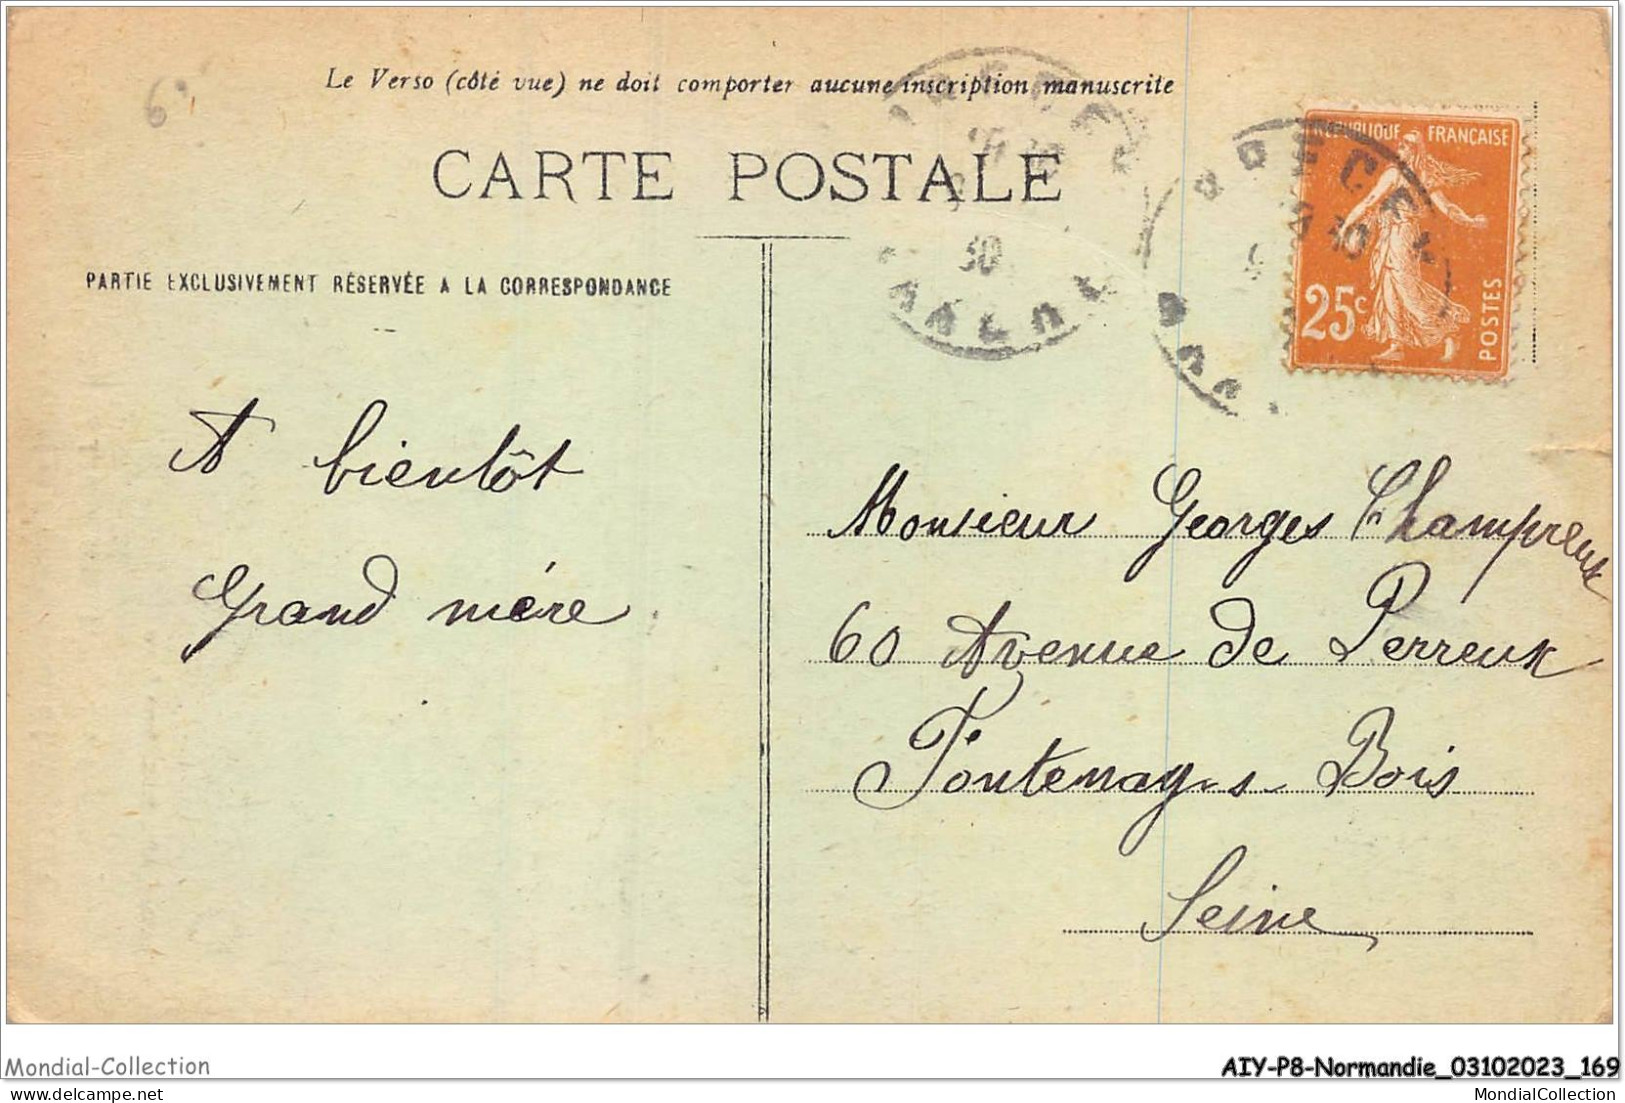 Le Verso (côté vue) ne doit comporter aucune inscription manuscrite
CARTE POSTALE
PARTIE EXCLUSIVEMENT RÉSERVÉE A LA CORRESPONDANCE
REPUBLIQUE FRANÇAISE
25c
POSTES
30
A bientôt
Grand mère
Monsieur Georges Champreux
60 Avenue de Perreux
Fontenay-s-Bois
Seine
Mondial-Collection
AIY-P8-Normandie_03102023_169
www.delcampe.net
MondialCollection